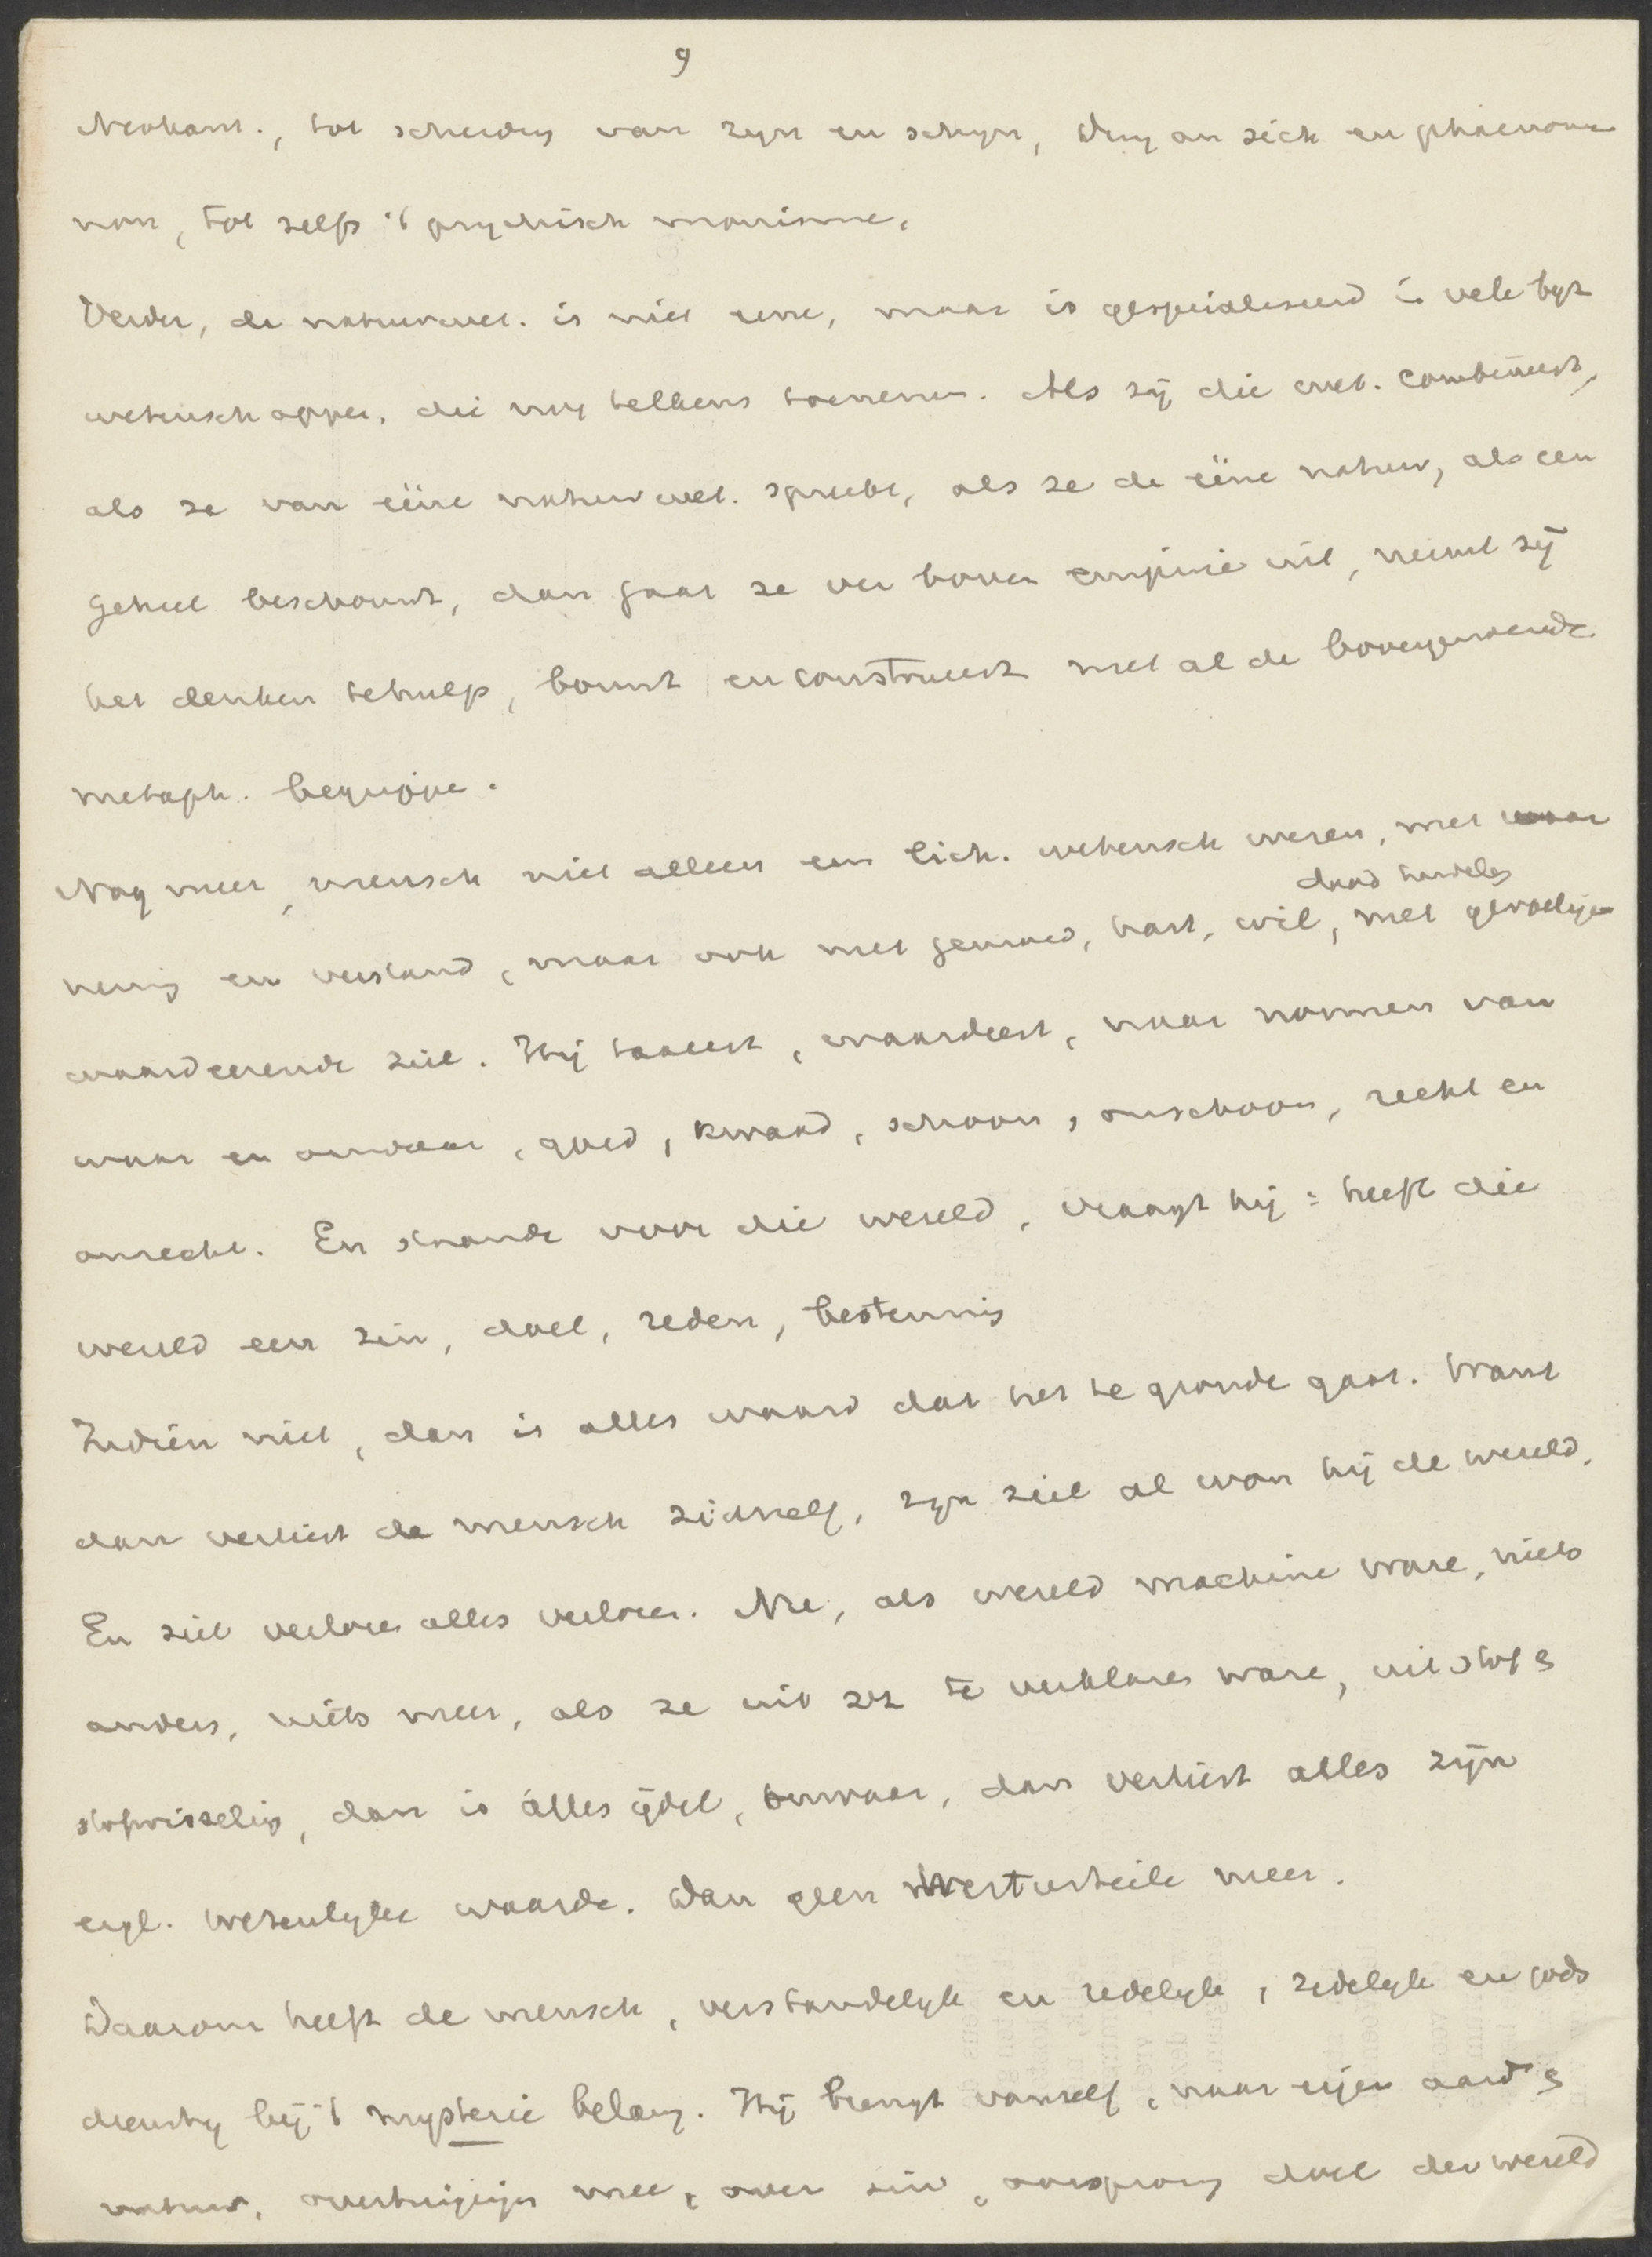 9
Neokant., tot scheiding van zijn en schijn, Ding an sich en phaenome
non, tot zelfs 't psychisch monisme.
Verder, de natuurwet. is niet eene, maar is gespecialiseerd in vele byz
wetenschappen, die nog telkens toenemen. Als zij die wet. combineert,
als ze van ééne natuurwet. spreekt, als ze de ééne natuur, als een
geheel beschouwt, dan gaat ze ver boven empirie uit, neemt zij
het denken te hulp, bouwt en construeert met al de bovengenoemde
metaph. begrippen.
Nog meer, mensch niet alleen een lich. wetensch wezen, met waar
neming en verstand, maar ook met gemoed, hart, wil, daad handeling met gevoelige
waardeerende ziel. Hij taxeert, waardeert, naar normen van
waar en onwaar, goed, kwaad, schoon, onschoon, recht en
onrecht. En staande voor die wereld, vraagt hij: heeft die
wereld een zin, doel, reden, bestemming
Indien niet, dan is alles waard dat het te gronde gaat. Want
dan verliest de mensch zichzelf, zijn ziel al won hij de wereld.
En ziel verloren alles verloren. Nee, als wereld machine ware, niets
anders, niets meer, als ze uit zich te verklaren ware, uit stof en
stofwisseling, dan is álles ijdel, onwaar, dan verliest alles zijn
eigl. wezenlijke waarde. Dan geen Werturteile meer.
Daarom heeft de mensch, verstandelijk en redelijk, zedelijk en gods
dienstig bij 't mysterie belang. Hij brengt vanzelf, naar eigen aard en
natuur, overtuigingen mee, over zin, oorsprong doel der wereld